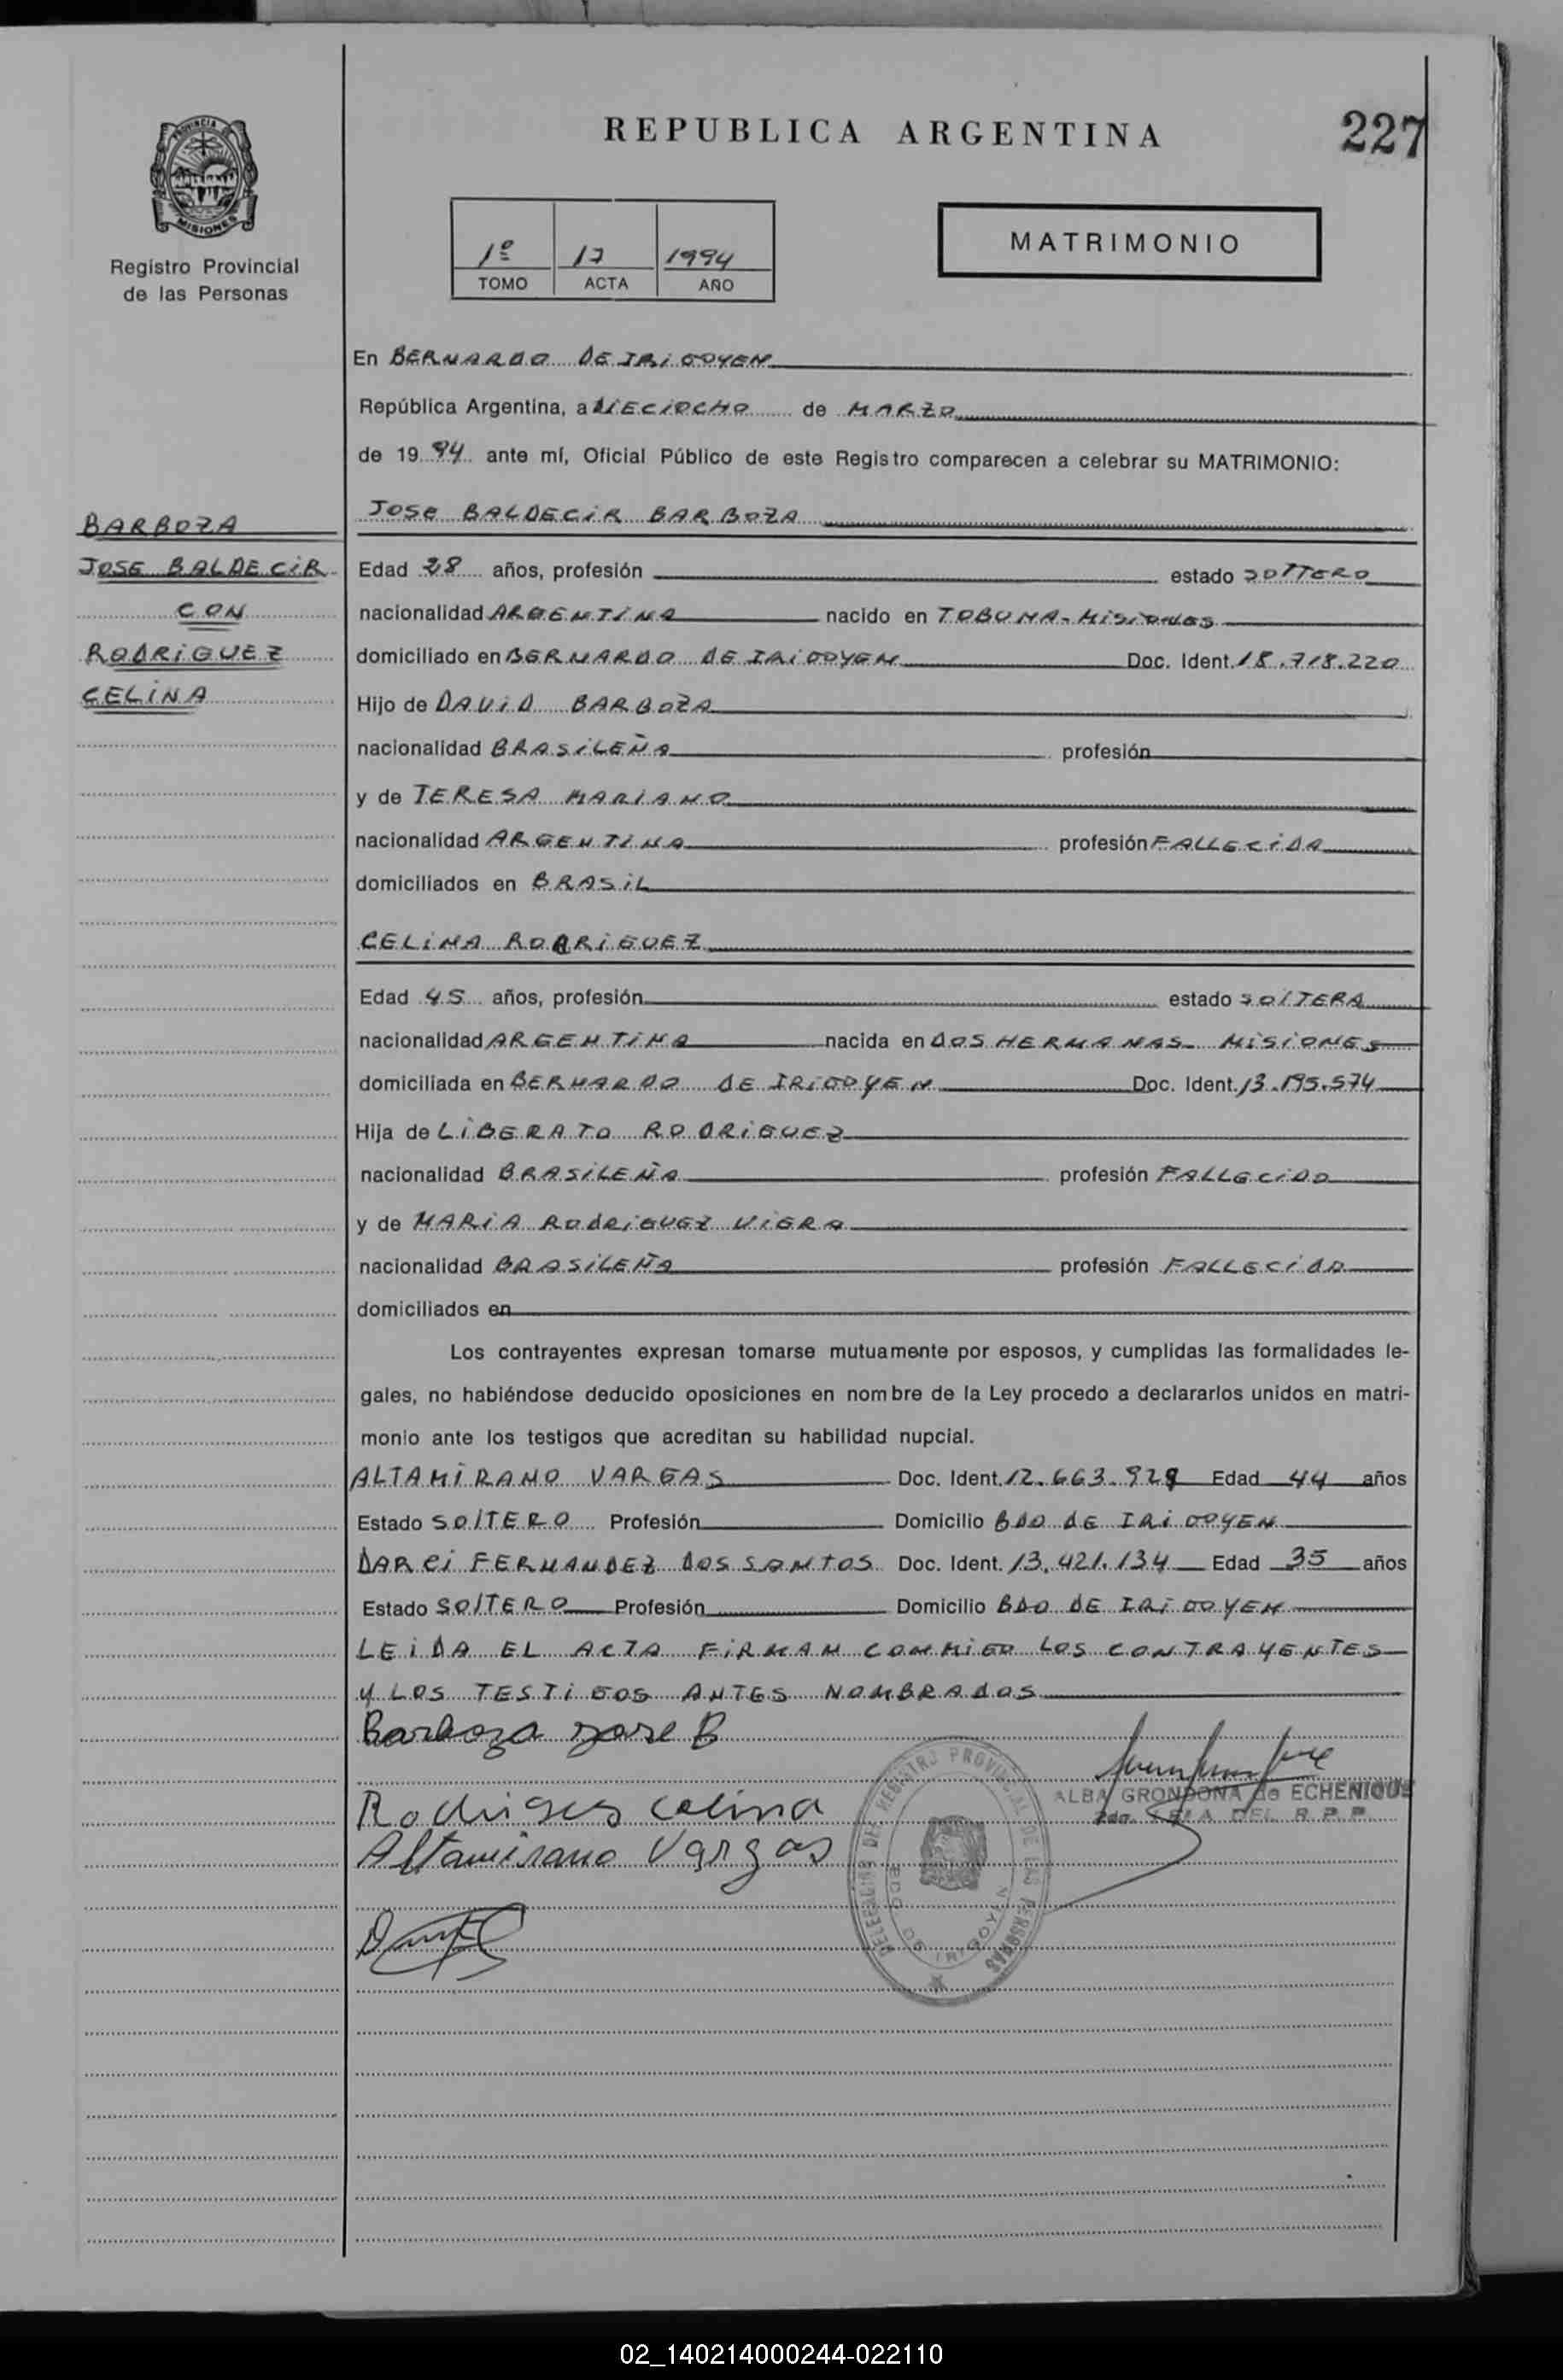 REPUBLICA ARGENTINA
227
PROVINCIA DE
MISIONES
Registro Provincial
de las Personas
1º 17 1994
TOMO ACTA AÑO
MATRIMONIO
En BERNARDO DE IRIGOYEN
República Argentina, a DIECIOCHO de MARZO
de 19 94 ante mí, Oficial Público de este Registro comparecen a celebrar su MATRIMONIO:
BARBOZA
JOSE BALDECIR
CON
RODRIGUEZ
CELINA
JOSE BALDECIR BARBOZA
Edad 28 años, profesión estado SOLTERO
nacionalidad ARGENTINA nacido en TOBUNA - MISIONES
domiciliado en BERNARDO DE IRIGOYEN Doc. Ident. 18.718.220
Hijo de DAVID BARBOZA
nacionalidad BRASILEÑA profesión
y de TERESA MARIANO
nacionalidad ARGENTINA profesión FALLECIDA
domiciliados en BRASIL
CELINA RODRIGUEZ
Edad 45 años, profesión estado SOLTERA
nacionalidad ARGENTINA nacida en DOS HERMANAS - MISIONES
domiciliada en BERNARDO DE IRIGOYEN Doc. Ident. 13.195.574
Hija de LIBERATO RODRIGUEZ
nacionalidad BRASILEÑA profesión FALLECIDO
y de MARIA RODRIGUEZ VIERA
nacionalidad BRASILEÑA profesión FALLECIDO
domiciliados en
Los contrayentes expresan tomarse mutuamente por esposos, y cumplidas las formalidades le-
gales, no habiéndose deducido oposiciones en nombre de la Ley procedo a declararlos unidos en matri-
monio ante los testigos que acreditan su habilidad nupcial.
ALTAMIRANO VARGAS Doc. Ident. 12.663.929 Edad 44 años
Estado SOLTERO Profesión Domicilio BDO DE IRIGOYEN
DARCI FERNANDEZ DOS SANTOS Doc. Ident. 13.421.134 Edad 35 años
Estado SOLTERO Profesión Domicilio BDO DE IRIGOYEN
LEIDA EL ACTA FIRMAN CONMIGO LOS CONTRAYENTES
Y LOS TESTIGOS ANTES NOMBRADOS
Barboza jose B
Rodrigues celina
Altamirano Vargas
DELEGACION DEL REGISTRO PROVINCIAL DE LAS PERSONAS
BDO DE IRIGOYEN
ALBA GRONDONA de ECHENIQUE
DEL R.P.P.
02_140214000244-022110